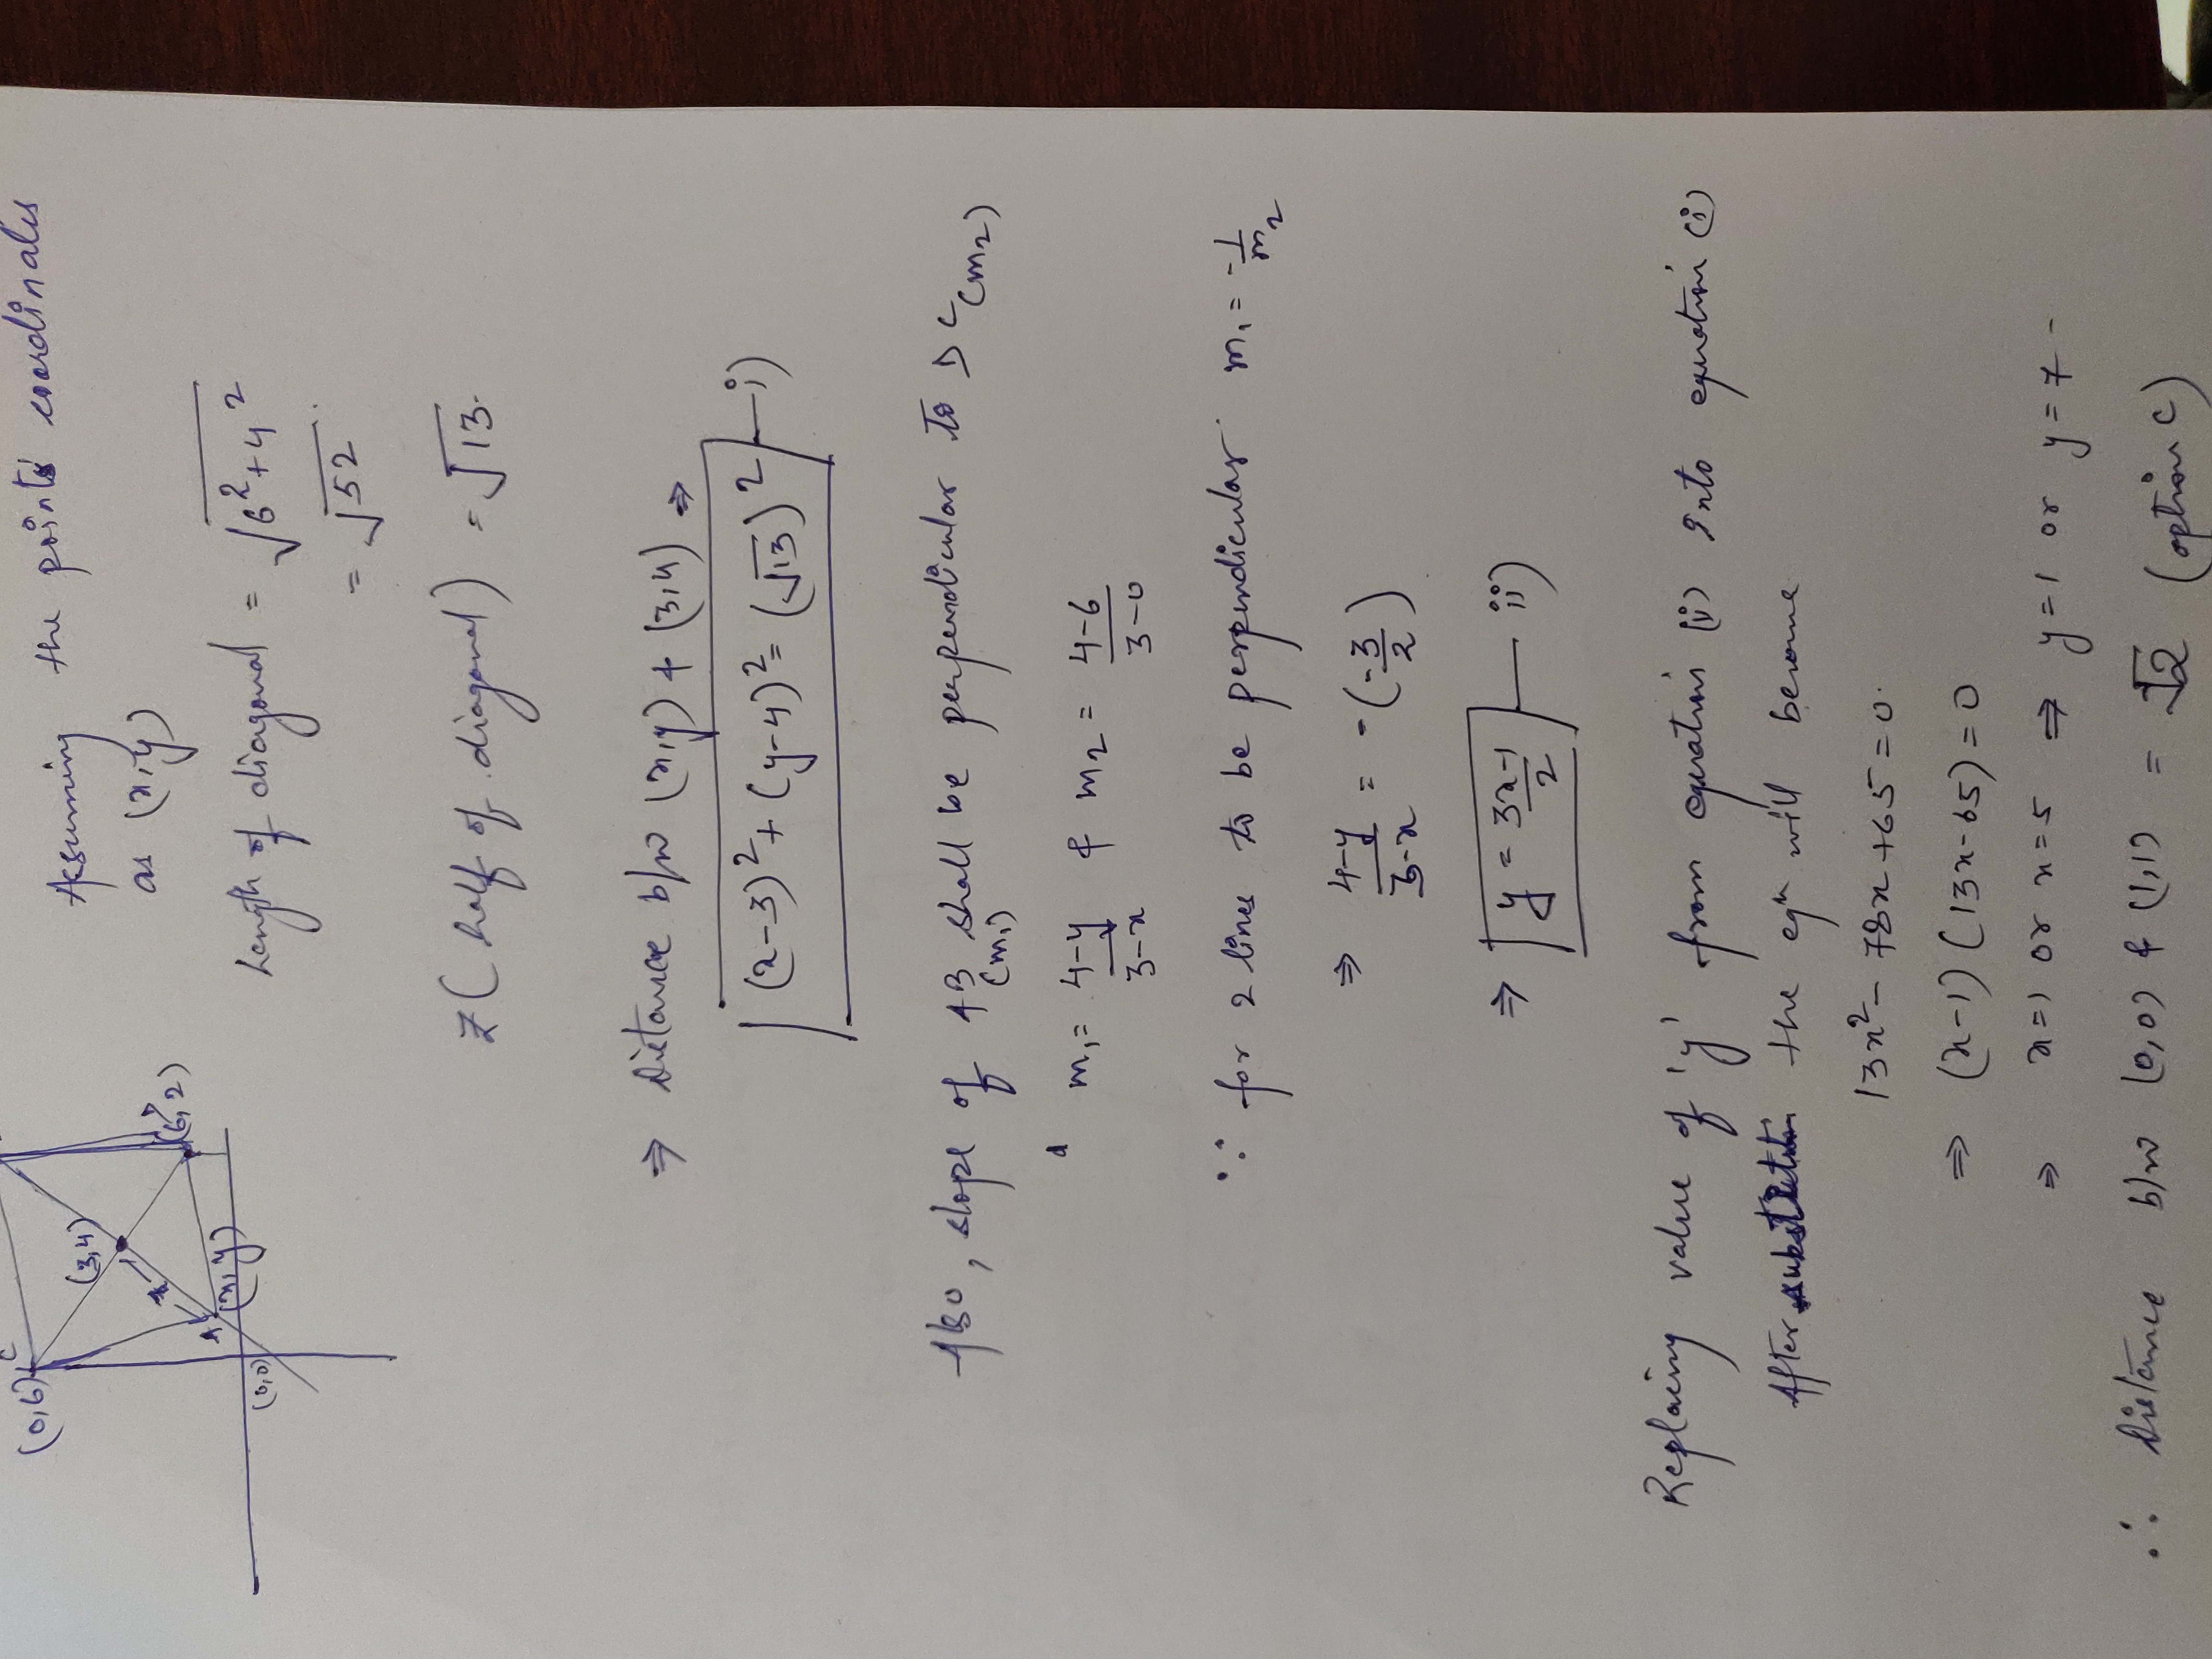 (0,6) C
(3,4)
x
A
(x,y)
(6,2)
(0,0)
Assuming the points coordinates
as (x,y)
Length of diagonal = √6²+4²
= √52
(half of diagonal) = √13.
⇒ Distance b/w (x,y) & (3,4) ⇒
(x-3)²+(y-4)²=(√13)² —i)
Also, slope of AB (m₁) shall be perpendicular to DC (m₂)
m₁ = 4-y/3-x & m₂ = 4-6/3-0
∵ for 2 lines to be perpendicular m₁ = -1/m₂
⇒ 4-y/3-x = -(-3/2)
⇒ y = 3x-1/2 — ii)
Replacing value of 'y' from equation (i) into equation (i)
After the eqn will become
13x²-78x+65=0.
⇒ (x-1)(13x-65)=0
⇒ x=1 or x=5 ⇒ y=1 or y=7 -
∴ Distance b/w (0,0) & (1,1) = √2 (option C)